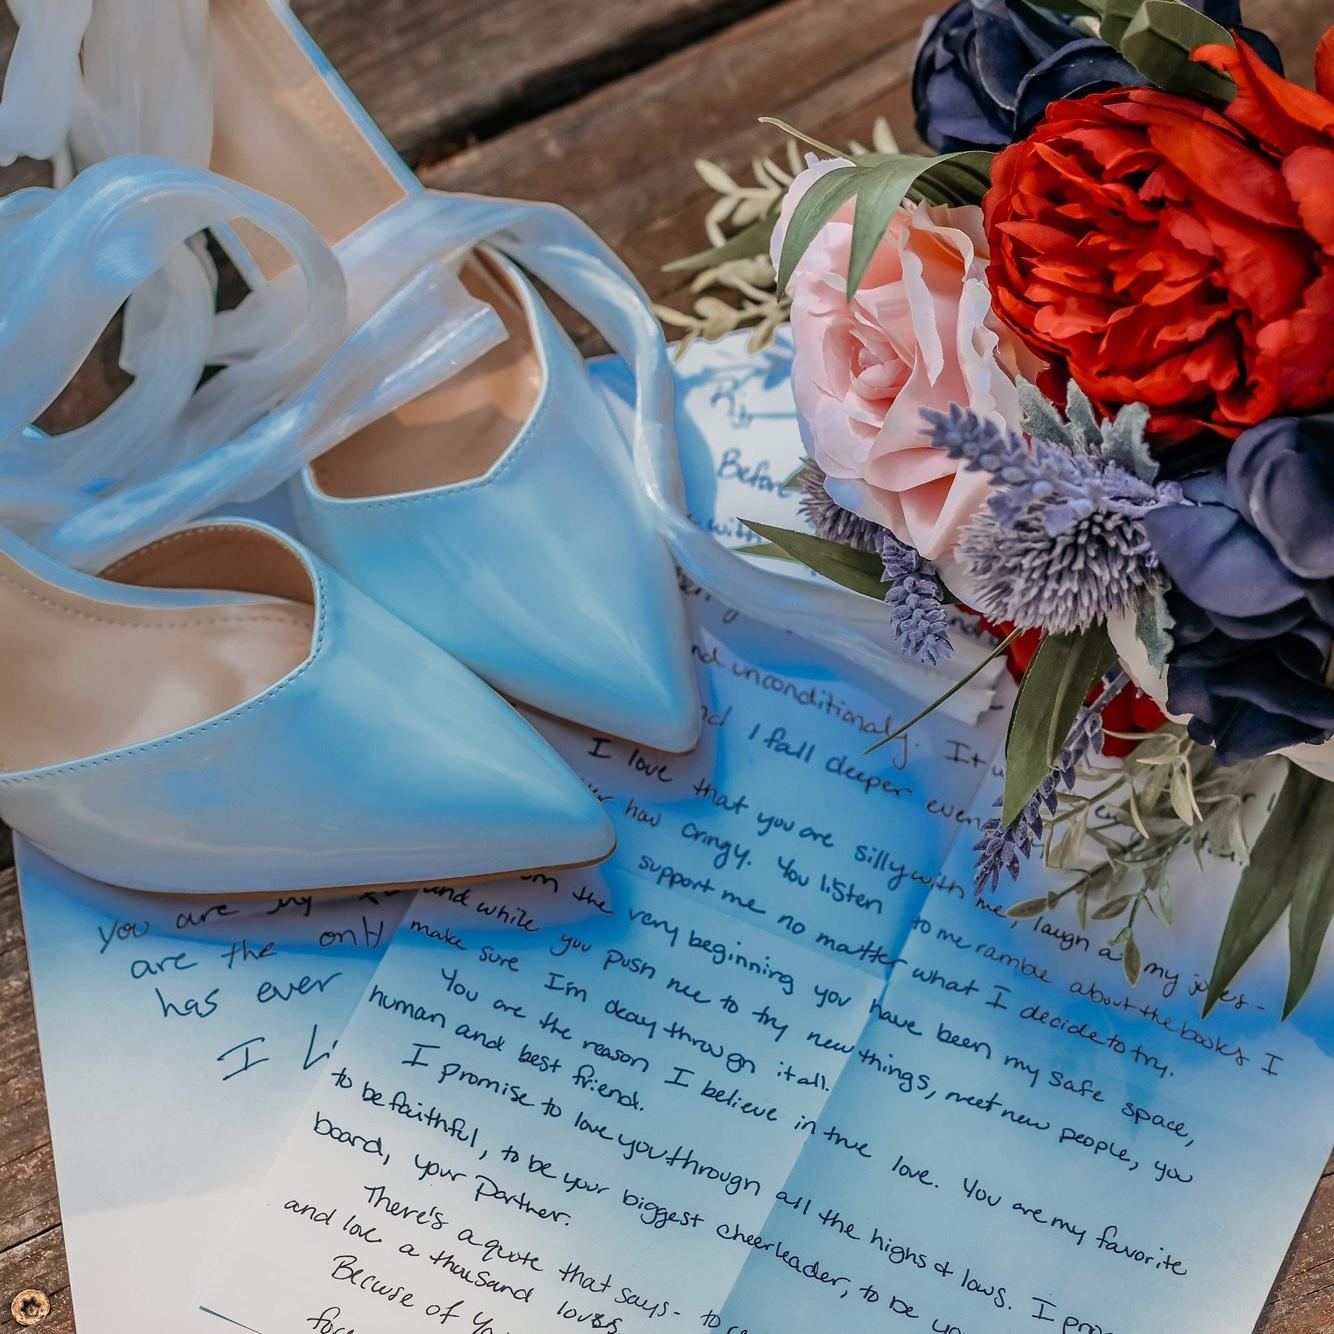 Before
with
nd unconditionaly. It
nd I fall deeper even
I love that you are silly with me, laugh at my jokes -
how cringy. You listen to me ramble about the books I
support me no matter what I decide to try.
om the very beginning you have been my safe space,
and while you push me to try new things, meet new people, you
make sure I'm okay through it all.
You are the reason I believe in true love. You are my favorite
human and best friend.
I promise to love you through all the highs & lows. I pro
to be faithful, to be your biggest cheerleader, to be yo
board, your Partner.
There's a quote that says - to re
and love a thousand loves
Because of yo
fore
you are my
are the only
has ever
I li